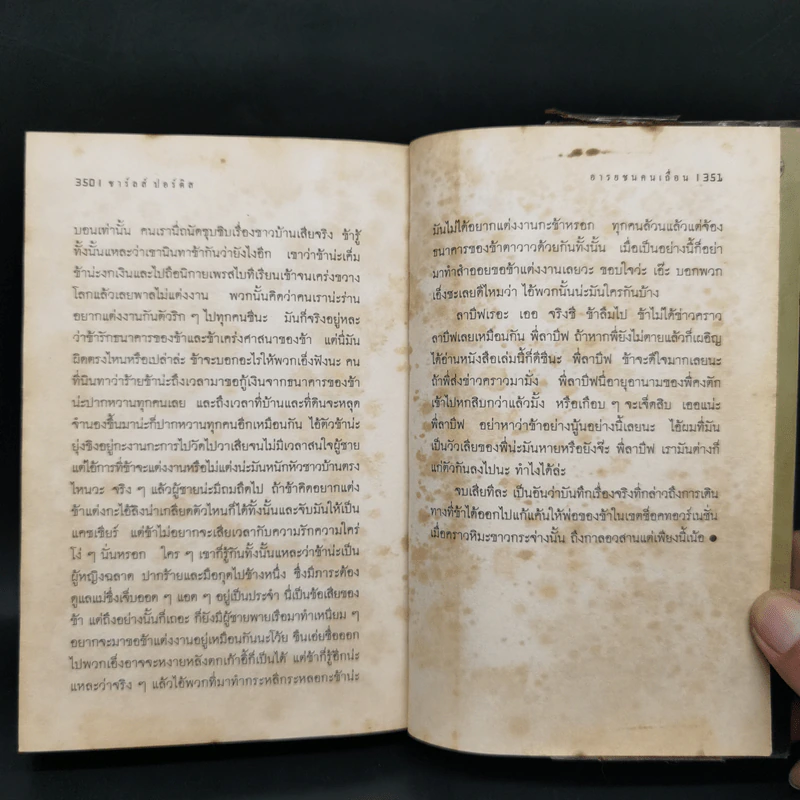 350 | ชาร์ลส์ ปอร์ติส
บอนเท่านั้น คนเรานี่ถนัดซุบซิบเรื่องชาวบ้านเสียจริง ข้ารู้
ทั้งนั้นแหละว่าเขานินทาข้ากันว่ายังไงอีก เขาว่าข้าน่ะเค็ม
ข้าน่ะงกเงินและไปถือนิกายเพรสไบทีเรียนเข้าจนเคร่งขวาง
โลกแล้วเลยพาลไม่แต่งงาน พวกนั้นคิดว่าคนเราน่ะร่าน
อยากแต่งงานกันตัวริก ๆ ไปทุกคนซินะ มันก็จริงอยู่หละ
ว่าข้ารักธนาคารของข้าและข้าเคร่งศาสนาของข้า แต่นี่มัน
ผิดตรงไหนหรือเปล่าล่ะ ข้าจะบอกอะไรให้พวกเอ็งฟังนะ คน
ที่นินทาว่าร้ายข้าน่ะถึงเวลามาขอกู้เงินจากธนาคารของข้า
น่ะปากหวานทุกคนเลย และถึงเวลาที่บ้านและที่ดินจะหลุด
จำนองขึ้นมาน่ะก็ปากหวานทุกคนอีกเหมือนกัน ไอ้ตัวข้าน่ะ
ยุ่งขิงอยู่กะงานกะการไปวัดไปวาเสียจนไม่มีเวลาสนใจผู้ชาย
แต่ไอ้การที่ข้าจะแต่งงานหรือไม่แต่งน่ะมันหนักหัวชาวบ้านตรง
ไหนวะ จริง ๆ แล้วผู้ชายน่ะมีถมถืดไป ถ้าข้าคิดอยากแต่ง
ข้าแต่งกะไอ้ลิงน่าเกลียดตัวไหนก็ได้ทั้งนั้นและจับมันให้เป็น
แคชเชียร์ แต่ข้าไม่อยากจะเสียเวลากับความรักความใคร่
โง่ ๆ นั่นหรอก ใคร ๆ เขาก็รู้กันทั้งนั้นแหละว่าข้าน่ะเป็น
ผู้หญิงฉลาด ปากร้ายและมือกุดไปข้างหนึ่ง ซึ่งมีภาระต้อง
ดูแลแม่ซึ่งเจ็บออด ๆ แอด ๆ อยู่เป็นประจำ นี่เป็นข้อเสียของ
ข้า แต่ถึงอย่างนั้นก็เถอะ ก็ยังมีผู้ชายพายเรือมาทำเหนียม ๆ
อยากจะมาขอข้าแต่งงานอยู่เหมือนกันนะโว้ย ขืนเอ่ยชื่อออก
ไปพวกเอ็งอาจจะหงายหลังตกเก้าอี้ก็เป็นได้ แต่ข้าก็รู้อีกน่ะ
แหละว่าจริง ๆ แล้วไอ้พวกที่มาทำกระหลีกระหลอกะข้าน่ะ
อารยชนคนเถื่อน | 351
มันไม่ได้อยากแต่งงานกะข้าหรอก ทุกคนล้วนแล้วแต่จ้อง
ธนาคารของข้าตาวาวด้วยกันทั้งนั้น เมื่อเป็นอย่างนี้ก็อย่า
มาทำสำออยขอข้าแต่งงานเลยวะ ขอบใจว่ะ เอ๊ะ บอกพวก
เอ็งซะเลยดีไหมว่า ไอ้พวกนั้นน่ะมันใครกันบ้าง
ลาบีฟเรอะ เออ จริงซี ข้าลืมไป ข้าไม่ได้ข่าวคราว
ลาบีฟเลยเหมือนกัน พี่ลาบีฟ ถ้าหากพี่ยังไม่ตายแล้วก็เผอิญ
ได้อ่านหนังสือเล่มนี้ก็ดีซินะ พี่ลาบีฟ ข้าจะดีใจมากเลยนะ
ถ้าพี่ส่งข่าวคราวมามั่ง พี่ลาบีฟนี่อายุอานามของพี่คงตัก
เข้าไปหกสิบกว่าแล้วมั้ง หรือเกือบ ๆ จะเจ็ดสิบ เออแน่ะ
พี่ลาบีฟ อย่าหาว่าข้าอย่างนู้นอย่างนี้เลยนะ ไอ้ผมที่มัน
เป็นวัวเลียของพี่น่ะมันหายหรือยังจ๊ะ พี่ลาบีฟ เรามันต่างก็
แก่ตัวกันลงไปนะ ทำไงได้ล่ะ
จบเสียทีละ เป็นอันว่าบันทึกเรื่องจริงที่กล่าวถึงการเดิน
ทางที่ข้าได้ออกไปแก้แค้นให้พ่อของข้าในเขตช็อคทอว์เนชั่น
เมื่อคราวหิมะขาวกระจ่างนั้น ถึงกาลอวสานแต่เพียงนี้เน้อ ●